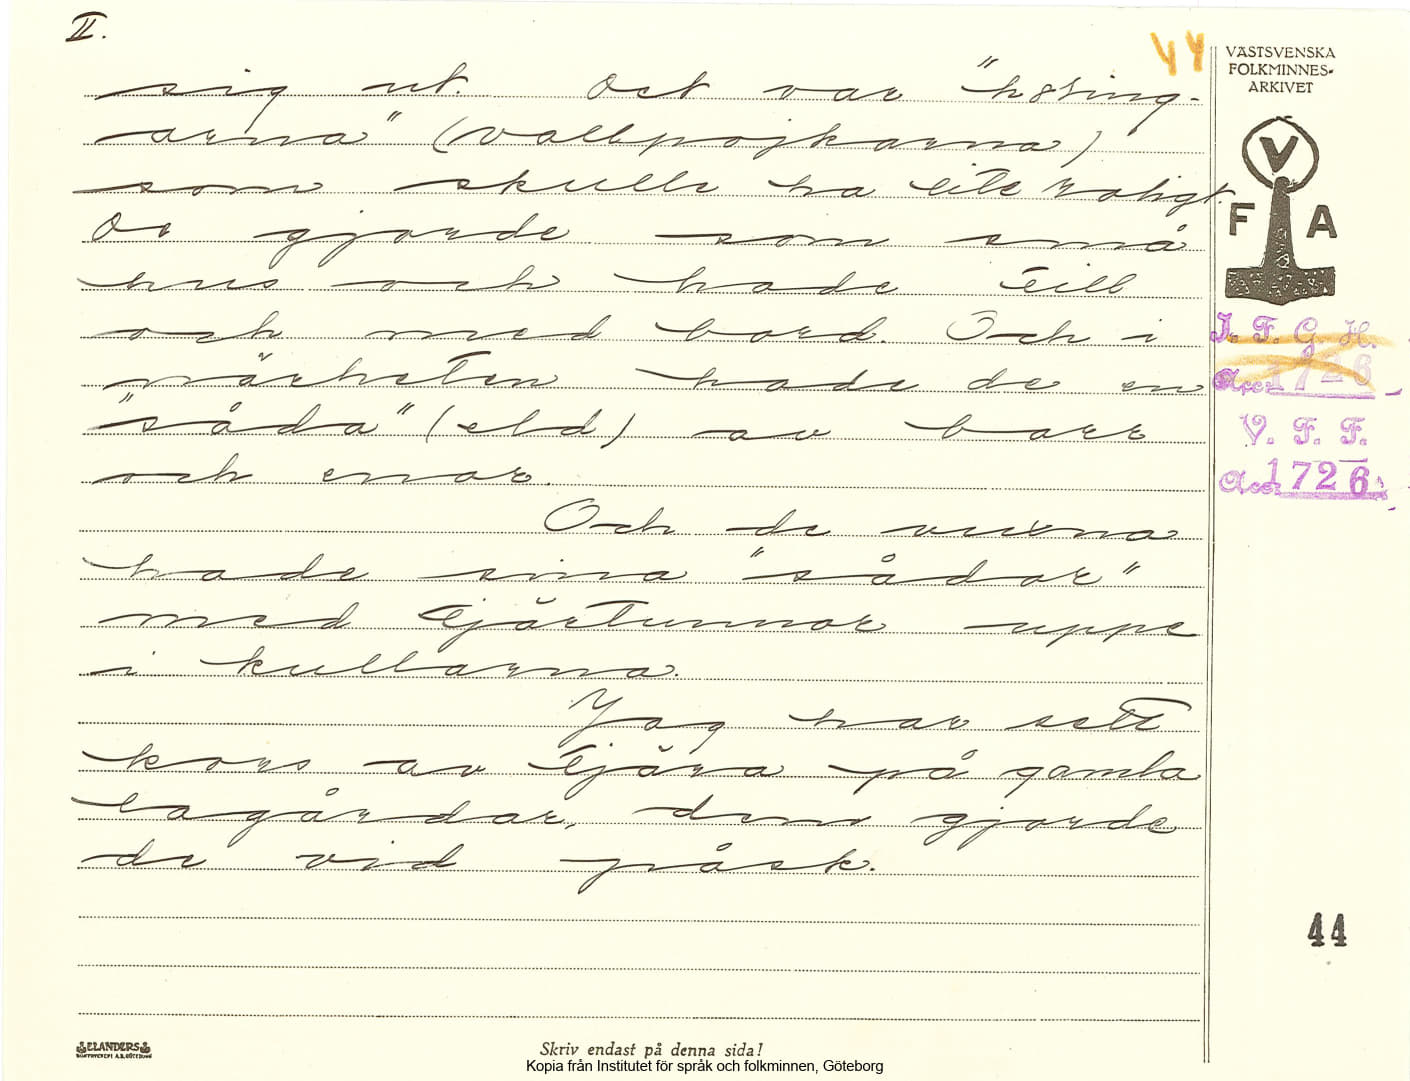 II.
44
sig ut. Det var "hösing-
arna" (vallpojkarna)
som skulle ha lite roligt.
De gjorde som små
hus och hade till
och med bord. Och i
närheten hade de en
"såda" (eld) av barr
och enar.
Och de vuxna
hade sina "sådar"
med tjärtunnor uppe
i kullarna.
Jag har sett
kors av tjära på gamla
lagårdar, dem gjorde
de vid påsk.
VÄSTSVENSKA
FOLKMINNES-
ARKIVET
V
F A
I. F. G. H.
Acc. 1726
V. F. F.
Acc. 1726
44
ELANDERS
BOKTRYCKERI A.B. GÖTEBORG
Skriv endast på denna sida!
Kopia från Institutet för språk och folkminnen, Göteborg